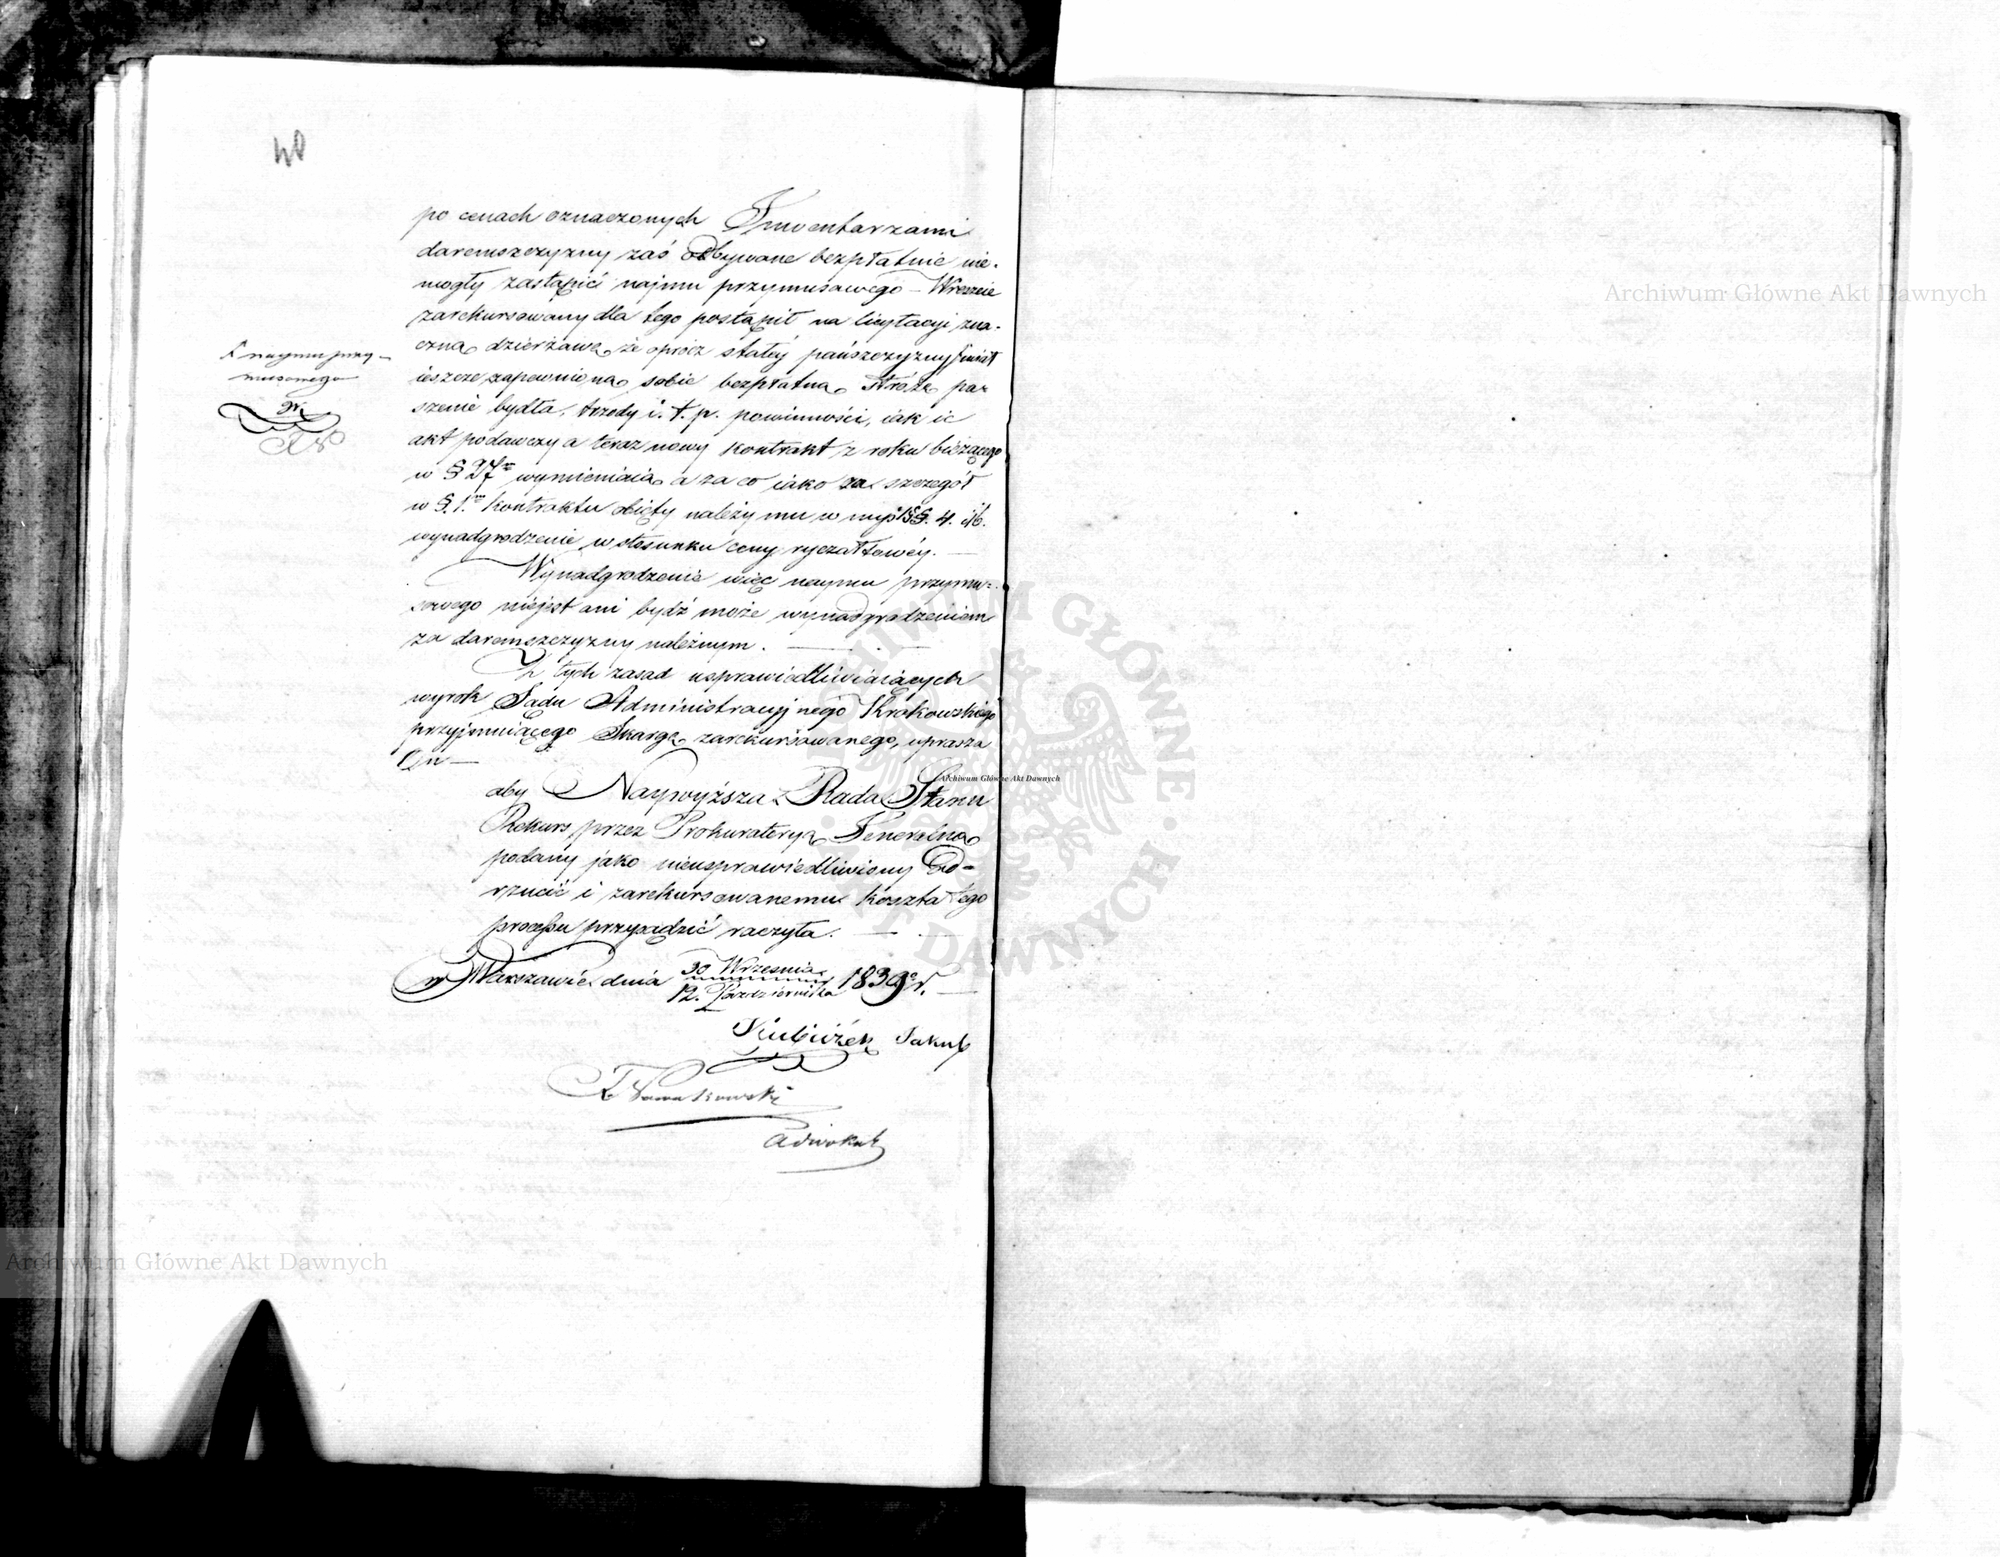 40
po cenach oznaczonych Inwentarzami
daremszczyzny zaś odbywane bezpłatnie nie-
mogły zastąpić najmu przymusowego — Wreszcie
zarekursowany dla tego postąpił na licytacyi zna-
czną dzierżawę, że oprócz stałéj pańszczyzny miał
ieszcze zapewnioną sobie bezpłatną stróżę, pa-
szenie bydła, trzody i. t. p. powinności, iak ie
akt podawczy a teraz nowy kontrakt z roku bieżącego
w § 27 wymieniaią a za co iako za szczegół
w §. 1. kontraktu obięty należy mu w myśl §§. 4. i 16.
wynadgrodzenie w stosunku ceny ryczałtowéy. —
Wynadgrodzenie więc naymu przymu-
sowego niejest ani bydź może wynadgrodzeniem
za daremszczyzny należnym. —
Z tych zasad usprawiedliwiaiących
wyrok Sądu Administracyjnego Krakowskiego
przyjmuiącego Skargę zarekursowanego, uprasza
On —
aby Naywyższa Rada Stanu
Rekurs przez Prokuratoryą Jeneralną
podany jako nieusprawiedliwiony Od-
rzucić i zarekursowanemu koszta tego
processu przysądzić raczyła. —
w Warszawie dnia 30 Września
12. Października 1839 r. —
Jakub
Nowakowski
Adwokat
naymu przy-
musowego
Archiwum Główne Akt Dawnych
Archiwum Główne Akt Dawnych
Archiwum Główne Akt Dawnych
ARCHIWUM GŁÓWNE AKT DAWNYCH